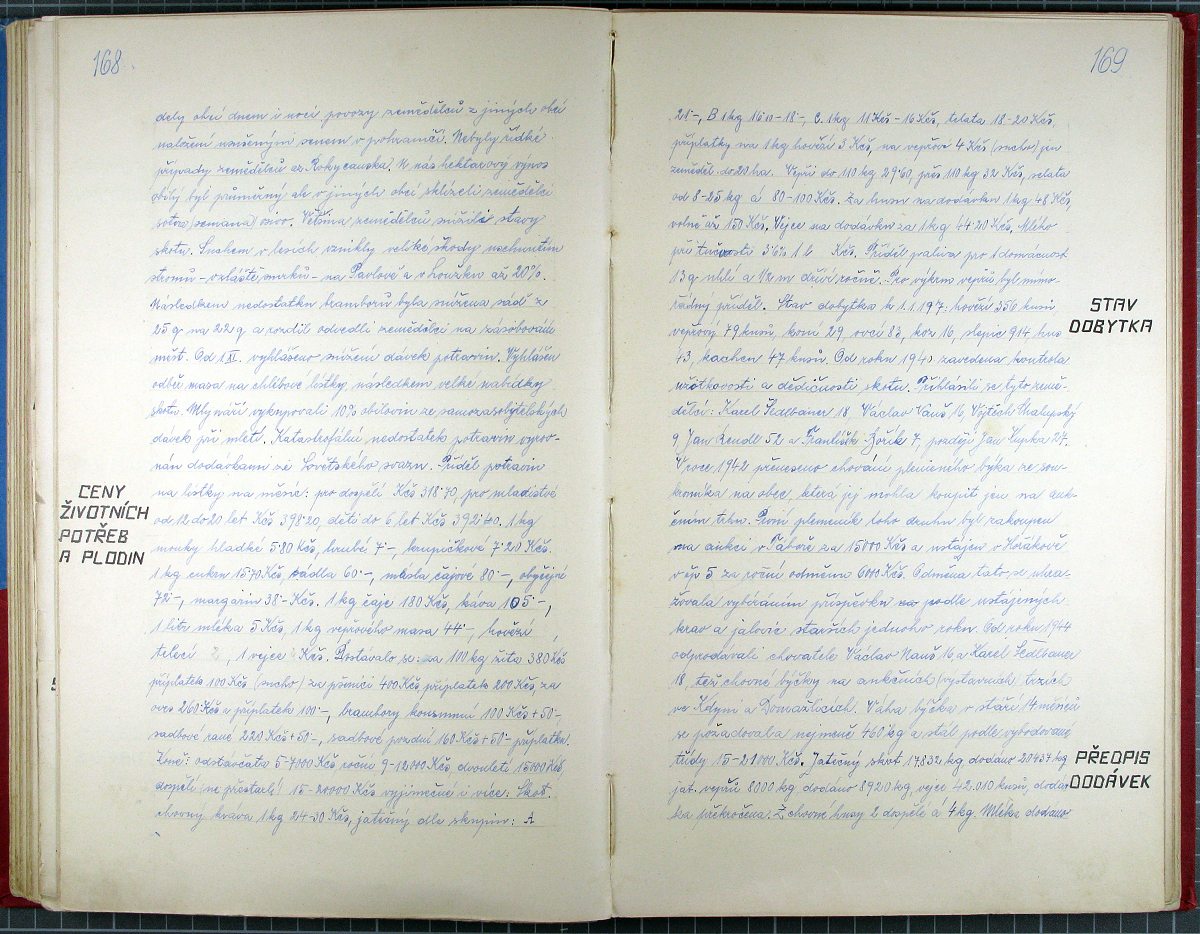 168
dely obcí dnem i nocí povozy zemědělců z jiných obcí
naložení usušeným senem v pohraničí. Nebyly řídké
případy zemědělců až Rokycanska. U nás hektarový výnos
obilí byl průměrný ale v jiných obcí sklízeli zemědělci
sotva (semana) osivo. Většina zemědělců snížili stavy
skotu. Suchem v lesích vznikly veliké škody uschnutím
stromů - zvláště smrků - na Pavlově a v Loužku až 20%.
Následkem nedostatku bramborů byla snížena sad z
25 q na 22 q a rozdíl odvedli zemědělci na zásobování
měst. Od 1 XI. vyhlášeno snížení dávek potravin. Vyhlášen
odběr masa na chlebové lístky, následkem velké nabídky
skotu. Mlynáři vykupovali 10% obilovin ze samozásobitelských
dávek při mletí. Katastrofální nedostatek potravin vyrov-
nán dodávkami ze Sovětského svazu. Příděl potravin
na lístky na měsíc: pro dospělí Kčs 318·70, pro mladistvé
od 12 do 20 let Kčs 398·20, děti do 6 let Kčs 392·40. 1 kg
mouky hladké 5·80 Kčs, hrubé 7·-, krupičkové 7·20 Kčs.
1 kg cukru 15·70 Kčs sádla 60·-, másla čajové 80·-, obyčejné
72·-, margarin 38·- Kčs. 1 kg čaje 180 Kčs, káva 105·-,
1 litr mléka 5 Kčs, 1 kg vepřového masa 44·-, hovězí ,
telecí , 1 vejce Kčs. Dostávalo se: za 100 kg žita 380 Kčs
příplatek 100 Kčs (sucho) za pšenici 400 Kčs příplatek 200 Kčs za
oves 260 Kčs a příplatek 100·-, brambory konsumní 100 Kčs + 50·-
sadbové rané 220 Kčs + 50·-, sadbové pozdní 160 Kčs + 50·- příplatku.
Koně: odstávčata 5-7000 Kčs roční 9-12000 Kčs, dvouletí 15000 Kčs,
dospělí (ne přestárlí) 15-20000 Kčs výjimečně i více: Skot.
chovný kráva 1 kg 24-30 Kčs, jatečný dle skupin: A
CENY
ŽIVOTNÍCH
POTŘEB
A PLODIN
169
21·-, B 1 kg 16·10-18·-, C. 1 kg 11 Kčs - 16 Kčs, telata 18-20 Kčs
příplatky na 1 kg hovězí 3 Kčs, na vepřové 4 Kčs (sucho) jen
zeměděl. do 20 ha. Vepři do 110 kg 29·60, přes 110 kg 32 Kčs, selata
od 8-25 kg á 80-100 Kčs. Za husu na dodávku 1 kg 48 Kčs,
volně až 150 Kčs. Vejce na dodávku za 1 kg 44·20 Kčs. Mléko
při tučnosti 3·6% 1 l Kčs. Příděl paliva pro 1 domácnost
13 q uhlí a 1/2 m dříví ročně. Pro výkrm vepřů byl mimo-
řádný příděl. Stav dobytka k 1.1.197: hovězí 356 kusů,
vepřový 79 kusů, koní 29, ovcí 83, koz 16, slepic 914, hus
43, kachen 47 kusů. Od roku 1940 zavedena kontrola
užitkovosti a dědičnosti skotu. Přihlásili se tyto země-
dělci: Karel Sedlbauer 18 Václav Vauš 16 Vojtěch Chalupský
9 Jan Rendl 52 a František Bořík 7, později Jan Slupka 27.
V roce 1942 přeneseno chování plemeného býka ze sou-
kromníka na obec, která jej mohla koupit jen na auk-
čním trhu. První plemeník toho druhu byl zakoupen
na aukci v Táboře za 15000 Kčs a ustájen v Hořákově
v čp 5 za roční odměnu 6000 Kčs. Odměna tato se uhra-
žovala vybíráním příspěvku na podle ustájených
krav a jalovic starších jednoho roku. Od roku 1944
odprodávali chovatelé Václav Vauš 16 a Karel Sedlbauer
18 též chovné býčky na aukčních (výstavních) trzích
ve Kdyni a Domažlicích. Váha býčka v stáří 14 měsíců
se požadovala nejméně 460 kg a stál podle vyhodované
třídy 15-21000 Kčs. Jatečný skot 17832 kg dodáno 20437 kg
jat. vepřů 8000 kg dodáno 8920 kg, vejce 42.010 kusů, dodáv-
ka překročena. Z chovné husy 2 dospělé á 4 kg. Mléka dodáno
STAV
DOBYTKA
PŘEDPIS
DODÁVEK